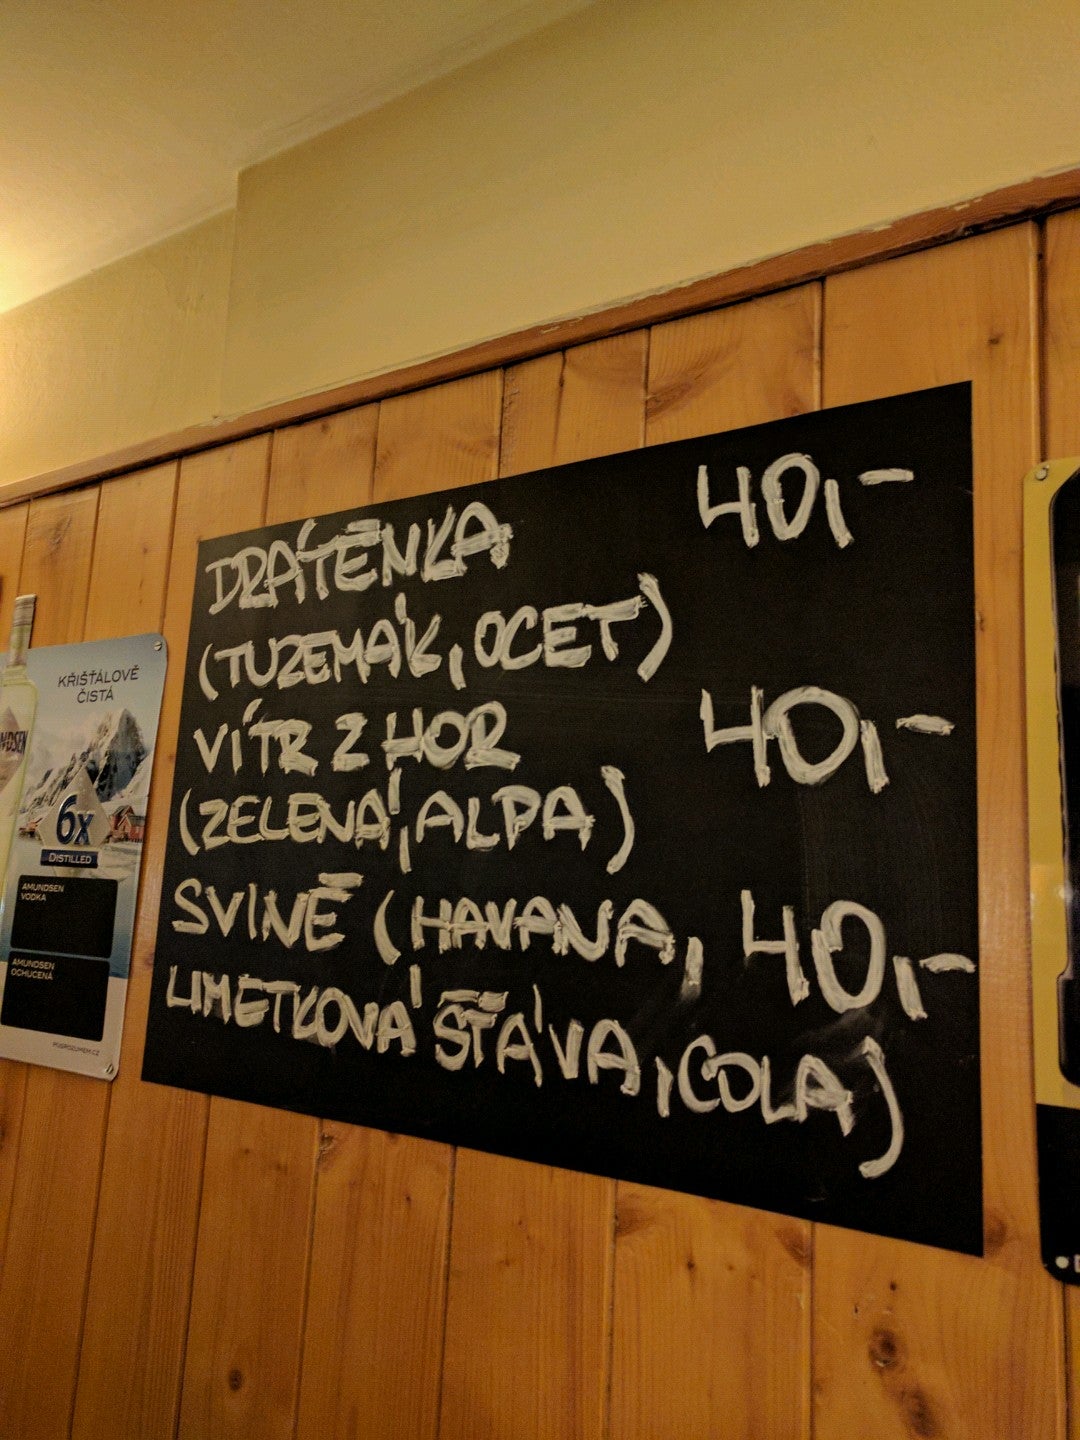 DRÁTĚNKA 40,-
(TUZEMÁK, OCET)
VÍTR Z HOR 40,-
(ZELENÁ, ALPA)
SVINĚ (HAVANA, 40,-
LIMETKOVÁ ŠŤÁVA, COLA)
KŘIŠŤÁLOVĚ
ČISTÁ
6x
DISTILLED
AMUNDSEN
VODKA
AMUNDSEN
OCHUCENÁ
PIJSROZUMEM.CZ